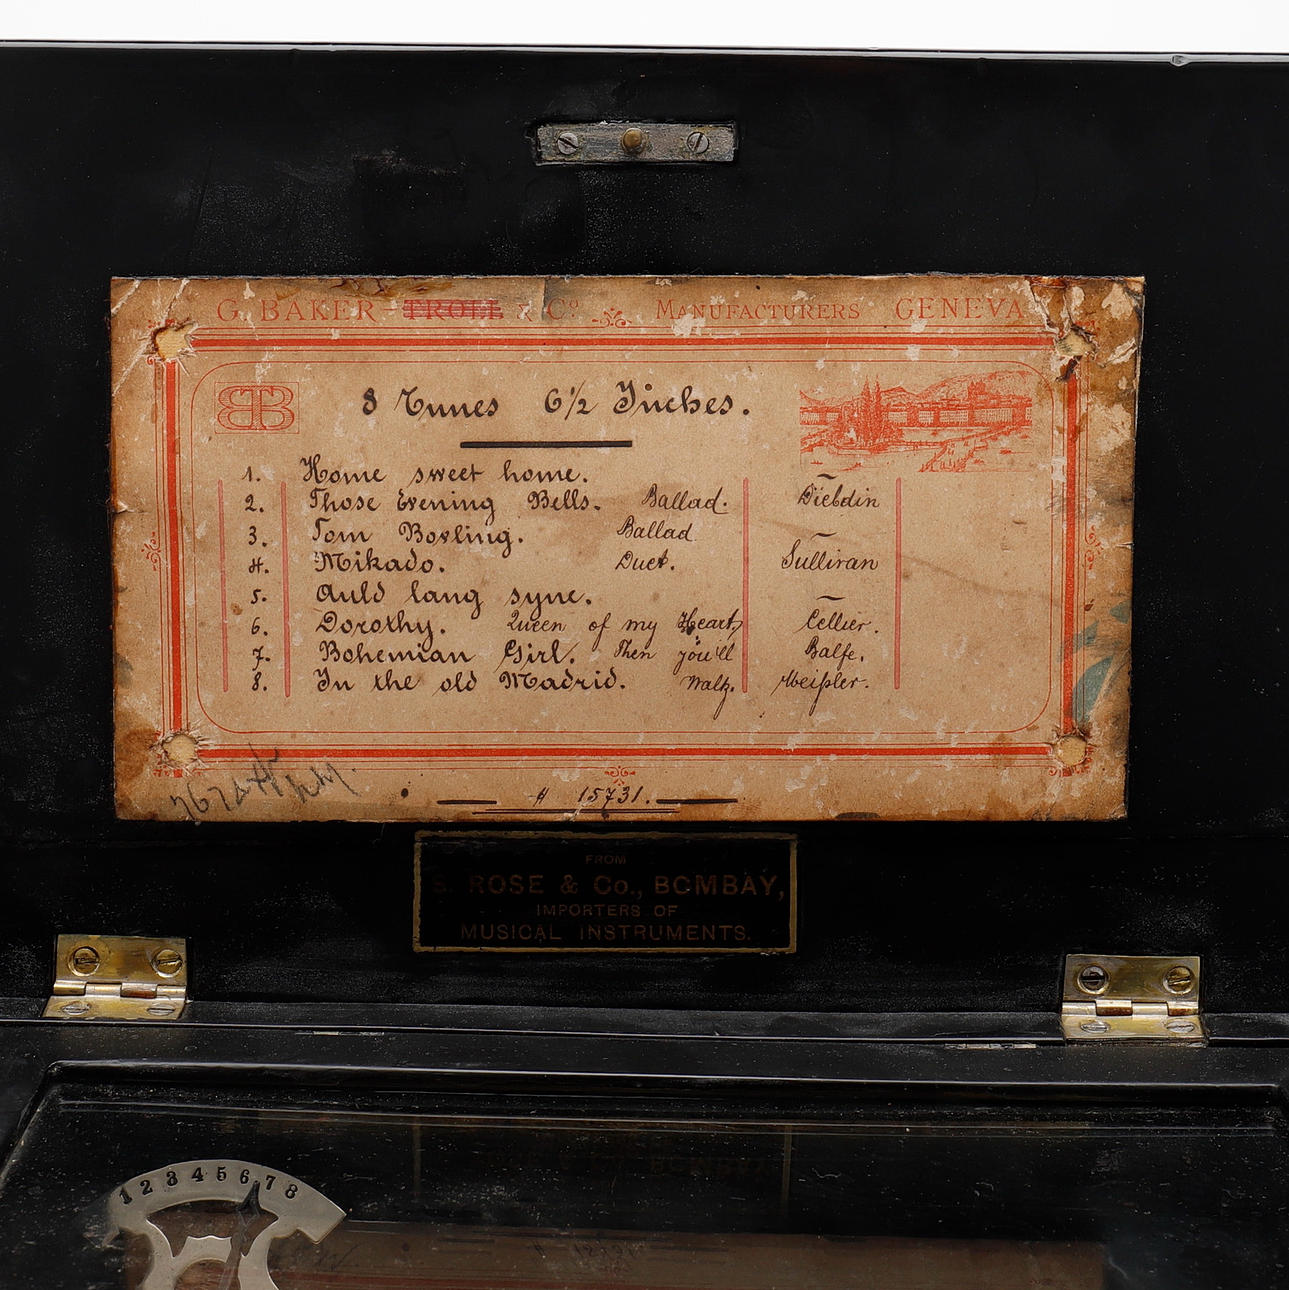 G. BAKER-TROLL & Cº MANUFACTURERS GENEVA
BTB
8 Tunes 6½ Inches.
1. Home sweet home.
2. Those Evening Bells. Ballad. —
3. Tom Bowling. Ballad Diebdin
4. Mikado. Duet. Sullivan
5. Auld lang syne. —
6. Dorothy. Queen of my Heart, Cellier.
7. Bohemian Girl. Then you'll Balfe.
8. In the old Madrid. Walz. Meißler.
# 15731.
FROM
S. ROSE & Co., BOMBAY,
IMPORTERS OF
MUSICAL INSTRUMENTS.
1 2 3 4 5 6 7 8